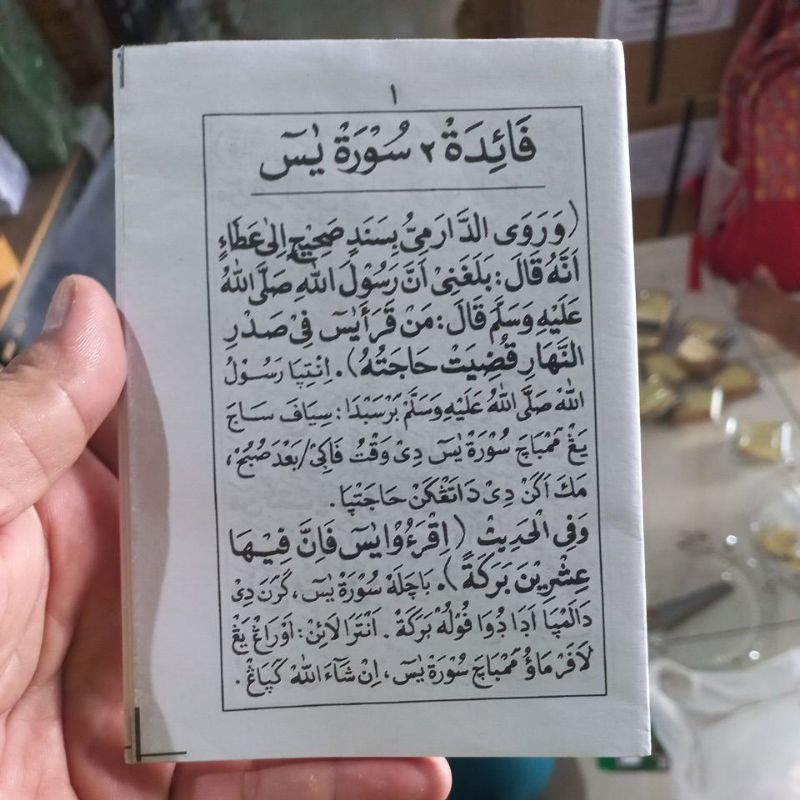 ١
فَائِدَةْ ٢ سُوْرَةْ يٰسٓ
(وَرَوَى الدَّارَمِيُّ بِسَنَدٍ صَحِيْحٍ اِلٰى عَطَاءٍ
اَنَّهُ قَالَ: بَلَغَنِيْ اَنَّ رَسُوْلَ اللّٰهِ صَلَّى اللّٰهُ
عَلَيْهِ وَسَلَّمَ قَالَ: مَنْ قَرَأَ يٰسٓ فِيْ صَدْرِ
النَّهَارِ قُضِيَتْ حَاجَتُهُ). اِنْتِيْڽَا رَسُوْلُ
اللّٰه صَلَّى اللّٰهُ عَلَيْهِ وَسَلَّمَ بَرْسَبْدَا: سِيَاڤَ سَاجَ
يَڠْ مَمْبَاچَ سُوْرَةْ يٰسٓ دِيْ وَقْتُ ڤَاكِيْ/بَعْدَ صُبُحْ،
مَكَ اَكَنْ دِيْ دَاتَڠْكَنْ حَاجَتْڽَا.
وَفِي الْحَدِيْثِ (اِقْرَءُوْا يٰسٓ فَاِنَّ فِيْهَا
عِشْرِيْنَ بَرَكَةً). بَاچَلَهْ سُوْرَةْ يٰسٓ، كَرَنَ دِيْ
دَالَمْڽَا اَدَا دُوَا ڤُوْلُهْ بَرَكَةْ. اَنْتَرَا لَائِنْ: اَوْرَاڠْ يَڠْ
لَاڤَرْ مَاؤُ مَمْبَاچَ سُوْرَةْ يٰسٓ، اِنْ شَآءَ اللّٰهُ كَڽَاڠْ.